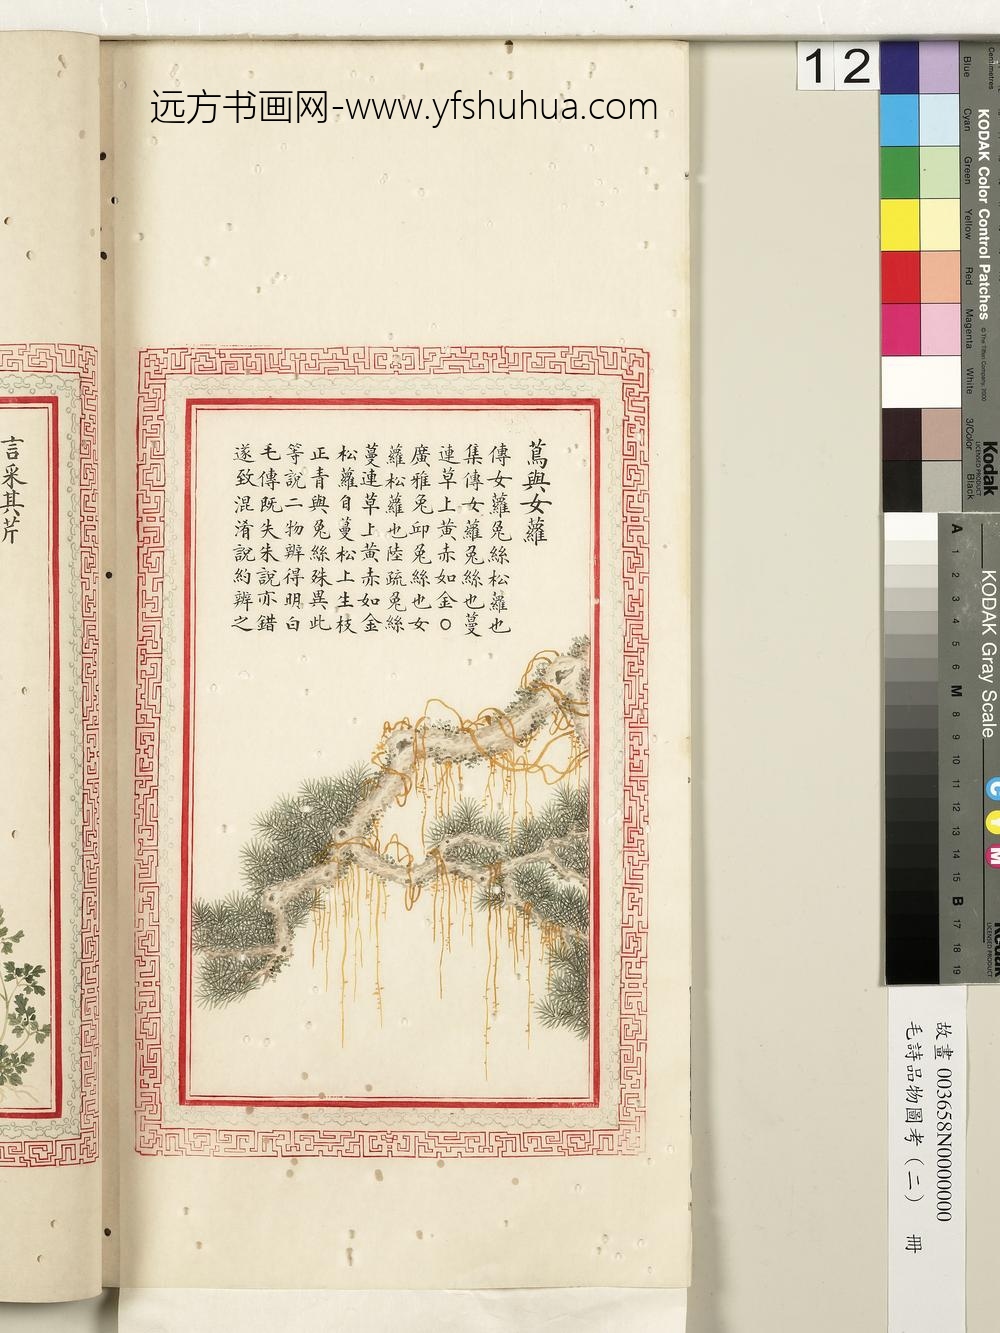 远方书画网-www.yfshuhua.com
蔦與女蘿
傳女蘿兔絲松蘿也
集傳女蘿兔絲也蔓
連草上黃赤如金○
廣雅兔邱兔絲也女
蘿松蘿也陸疏兔絲
蔓連草上黃赤如金
松蘿自蔓松上生枝
正青與兔絲殊異此
等說二物辨得明白
毛傳既失朱說亦錯
遂致混淆說約辨之
言采其芹
12
KODAK Color Control Patches
© The Tiffen Company, 2000
Centimetres
Blue
Cyan
Green
Yellow
Red
Magenta
White
3/Color
Black
Kodak
LICENSED PRODUCT
KODAK Gray Scale
A 1 2 3 4 5 6 M 8 9 10 11 12 13 14 15 B 17 18 19
C
Y
M
Kodak
LICENSED PRODUCT
故畫 003658N0000000
毛詩品物圖考（二） 冊